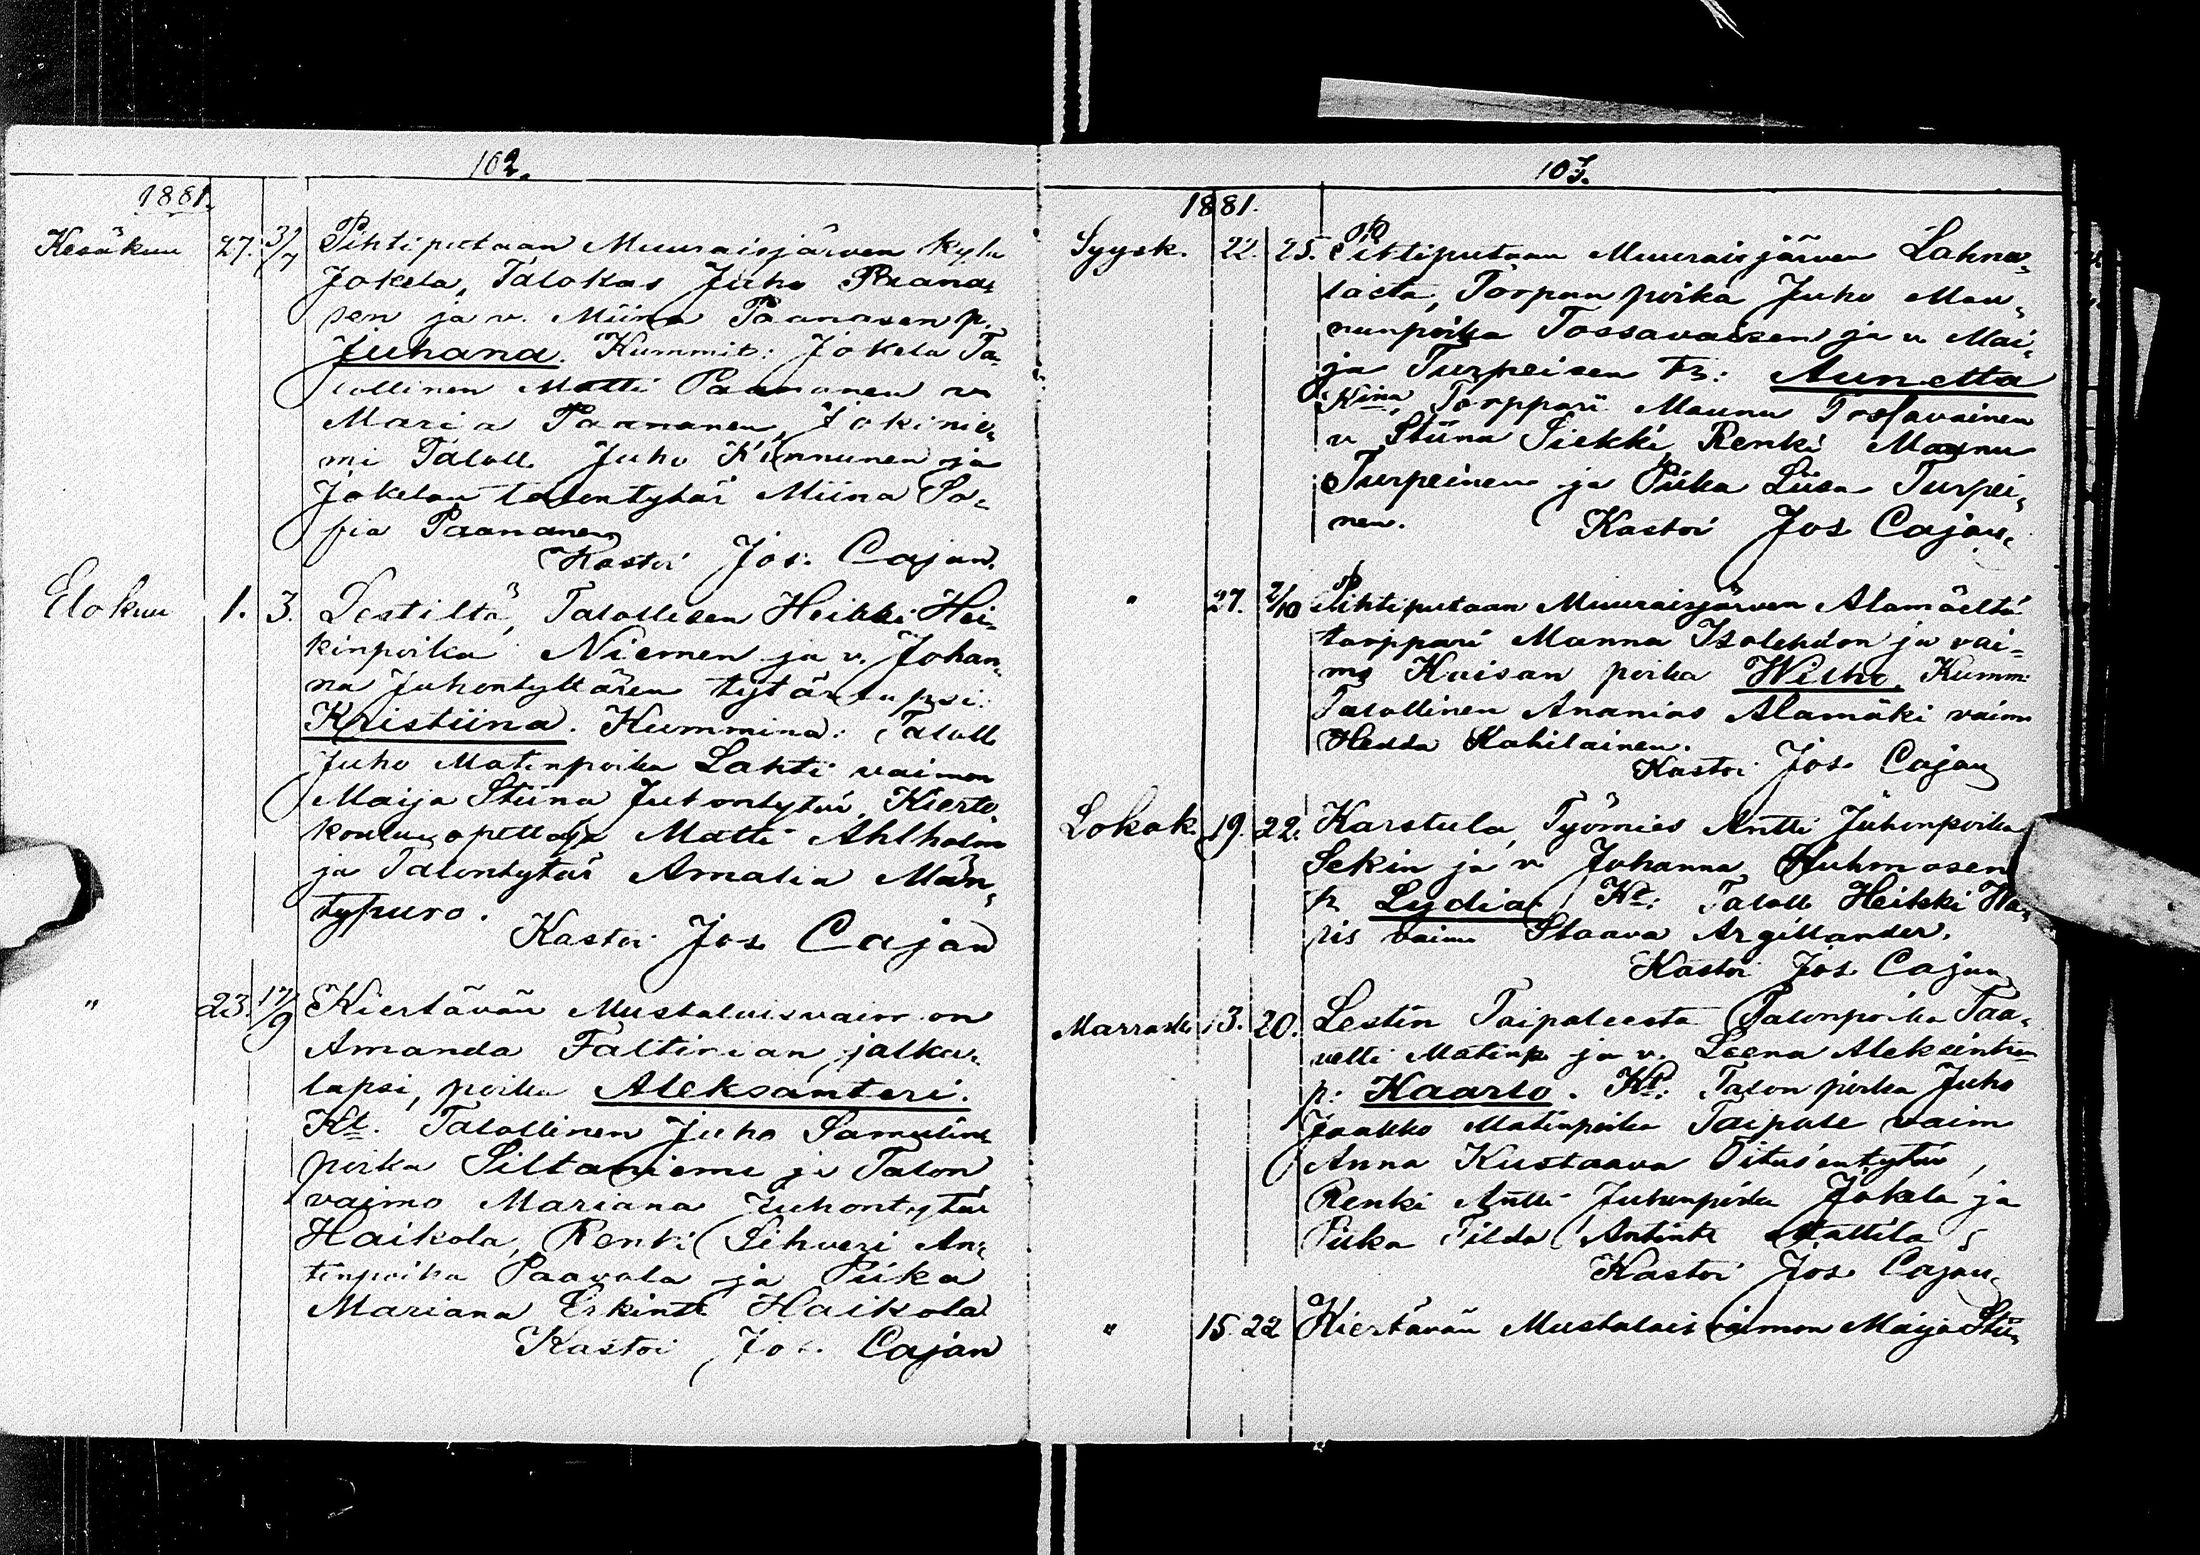 102.
1881.
Kesäkuu 27. 3/7 Pihtiputaan Muuraisjärven kylä
Jokela, Talokas Juho Paana-
sen ja v. Miina Paanasen p.
Juhana. Kummit: Jokela Ta-
lollinen Matti Paananen v
Maria Paananen, Jokinie-
mi Taloll. Juho Kinnunen ja
Jokelan talontytär Miina So-
fia Paananen
Kastoi Jos. Cajan.
Elokuu 1. 3. Lestiltä, Talollisen Heikki Hei-
kinpoika Niemen ja v. Johan-
na Juhontyttären tytärlapsi
Kristiina. Kummina: Taloll
Juho Matinpoika Lahti vaimon
Maija Stiina Juhontytär, Kierto-
koulun opettaja Matti Ahlholm
ja Talontytär Amalia Män-
typuro.
Kastoi Jos Cajan
" 23. 17/9 Kiertävän Mustalaisvaimon
Amanda Faltinian, jalka-
lapsi, poika Aleksanteri.
Kt. Talollinen Juho Samulin-
poika Siltaniemi ja Talon
vaimo Mariana Juhontytär
Haikola, Renki Sihveri An-
tinpoika Paavola ja Piika
Mariana Erkint. Haikola
Kastoi Jos. Cajan
103.
1881.
Syysk. 22. 25. Pihtiputaan Muuraisjärven Lahna-
lasta, Torpan poika Juho Mau-
nunpoika Tossavaisen ja v Mai-
ja Turpeisen tr: Aunetta
Kina, Torppari Maunu Tossavainen
v Stiina Siekki Renki Maunu
Turpeinen ja Piika Liisa Turpei-
nen. Kastoi Jos Cajan.
" 27. 2/10 Pihtiputaan Muuraisjärven Alamäeltä
torppari Manna Isolehdon ja vai-
mo Kaisan poika Wilho. Kumm:
Talollinen Ananias Alamäki vaimo
Hedda Kahilainen.
Kastoi Jos Cajan
Lokak. 19. 22. Karstula, Työmies Antti Juhonpoika
Sekin ja v Johanna Huhmosen
tr. Lydia. Kt: Taloll Heikki Ha-
pis vaimo Staava Argillander.
Kastoi Jos Cajan
Marrask 13. 20. Lestin Taipaleesta Talonpoika Taa-
vetti Matinp. ja v. Leena Aleksintr
p: Kaarlo. Kt: Talon poika Juho
Jaakko Matinpoika Taipale vaim
Anna Kustaava Titus'entytär,
Renki Antti Juhonpoika Jokela ja
Piika Tilda Antint. Mattila
Kastoi Jos Cajan
" 15. 22 Kiertävän Mustalaisvaimon Maija Stii-